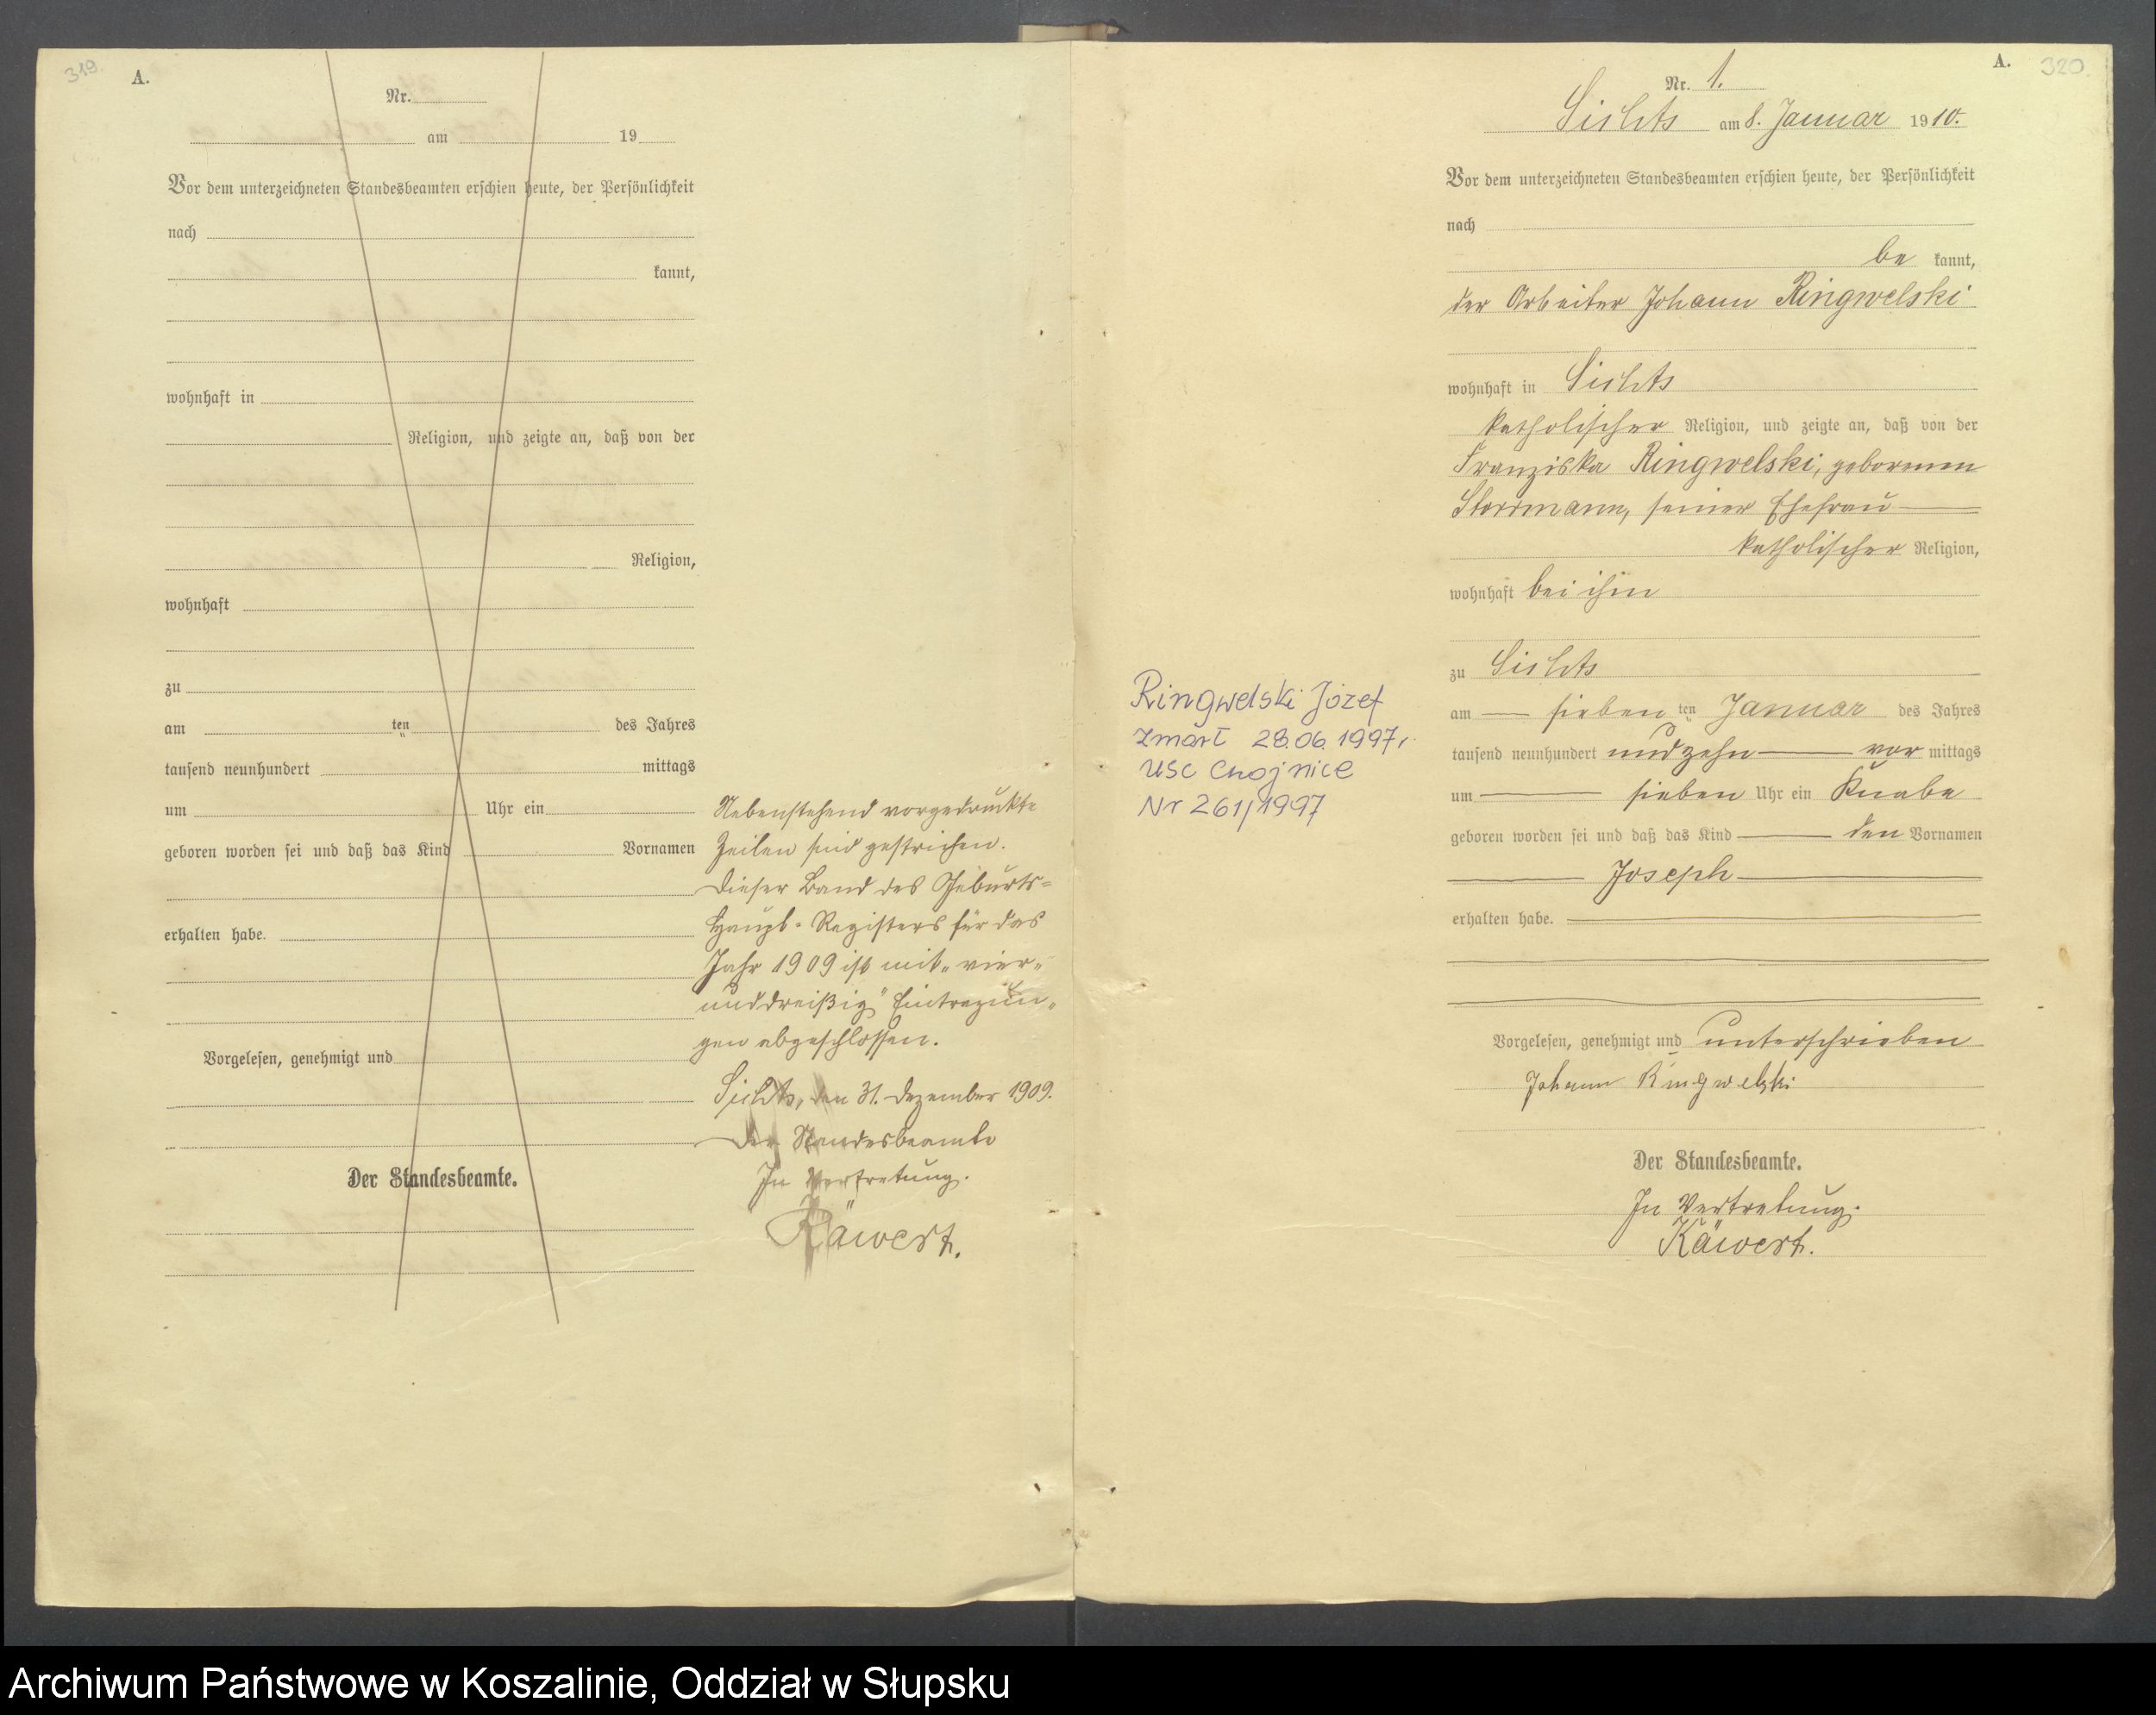 319.
A.
Nr.
am 19
Vor dem unterzeichneten Standesbeamten erschien heute, der Persönlichkeit
nach
kannt,
wohnhaft in
Religion, und zeigte an, daß von der
Religion,
wohnhaft
zu
am ten des Jahres
tausend neunhundert mittags
um Uhr ein
geboren worden sei und daß das Kind Vornamen
erhalten habe.
Vorgelesen, genehmigt und
Der Standesbeamte.
Nebenstehend vorgedruckte
Zeilen sind gestrichen.
Dieser Band des Geburts=
Haupt-Registers für das
Jahr 1909 ist mit „vier-
unddreißig" Eintragun-
gen abgeschlossen.
den 31. Dezember 1909.
Der Standesbeamte
In Vertretung.
Käwert.
A.
320.
Nr. 1.
am 8. Januar 1910.
Vor dem unterzeichneten Standesbeamten erschien heute, der Persönlichkeit
nach
be kannt,
der Arbeiter Johann Ringwelski
wohnhaft in
katholischer Religion, und zeigte an, daß von der
Franziska Ringwelski, geborenen
seiner Ehefrau
katholischer Religion,
wohnhaft bei ihm
zu
am sieben ten Januar des Jahres
tausend neunhundert und zehn vor mittags
um sieben Uhr ein Knabe
geboren worden sei und daß das Kind den Vornamen
Joseph
erhalten habe.
Vorgelesen, genehmigt und unterschrieben
Johann Ringwelski
Der Standesbeamte.
In Vertretung.
Käwert.
Ringwelski Józef
zmarł 28.06.1997r.
USC Chojnice
Nr 261/1997
Archiwum Państwowe w Koszalinie, Oddział w Słupsku